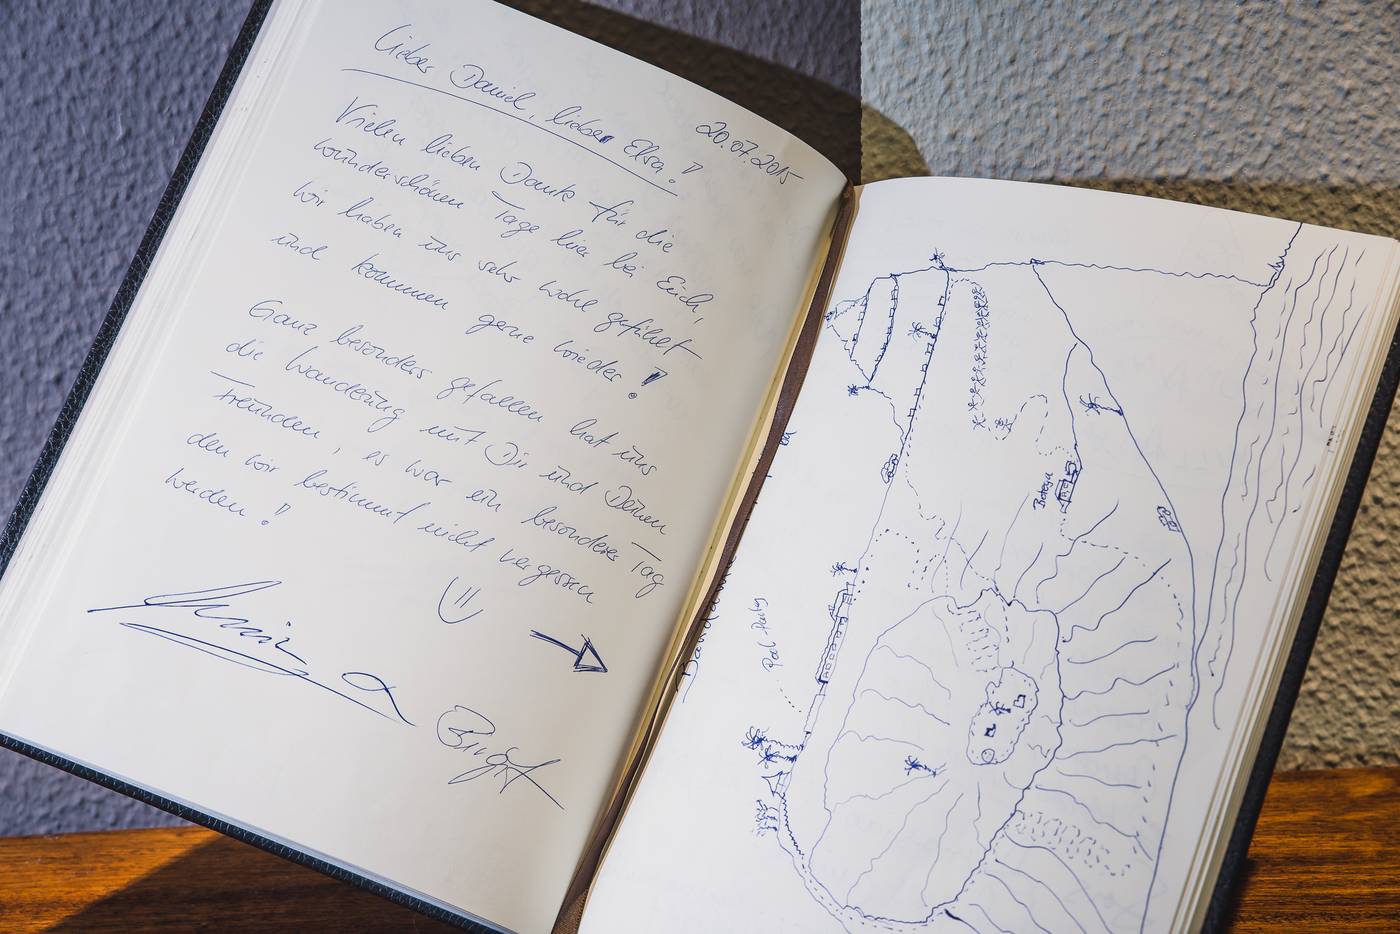 20.07.2015
Lieber Daniel, lieber Elsa!
Vielen lieben Dank für die
wunderschönen Tage hier bei Euch,
wir haben uns sehr wohl gefühlt
und kommen gerne wieder!
Ganz besonders gefallen hat uns
die Wanderung mit Dir und Deinen
Freunden, es war ein besonderer Tag
den wir bestimmt nicht vergessen
werden!
Birgit
Pool-Party
Bodega